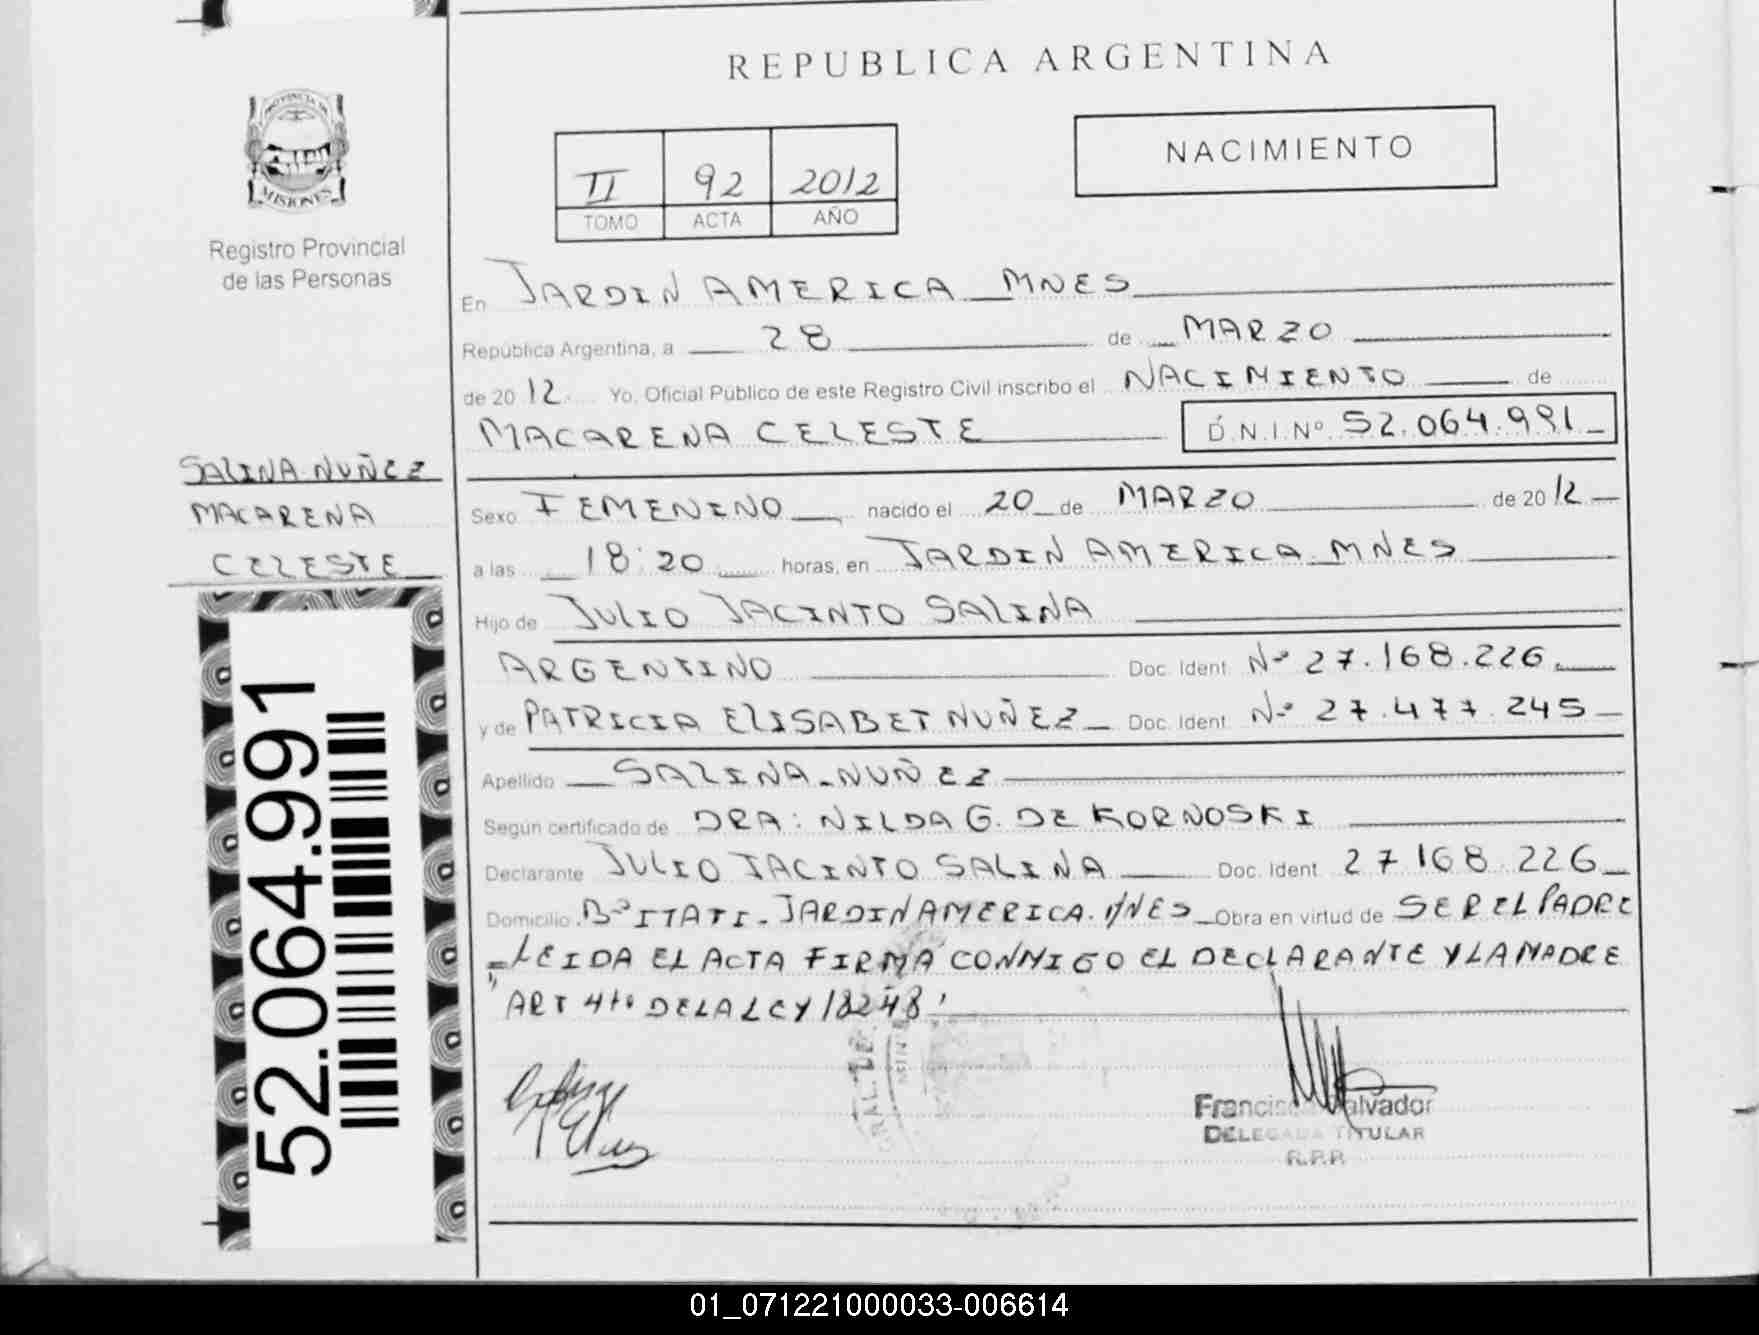 REPUBLICA ARGENTINA
PROVINCIA DE
MISIONES
Registro Provincial
de las Personas
NACIMIENTO
II 92 2012
TOMO ACTA AÑO
En JARDIN AMERICA MNES
República Argentina, a 28 de MARZO
de 2012. Yo, Oficial Público de este Registro Civil inscribo el NACIMIENTO de
MACARENA CELESTE D.N.I.Nº 52.064.991
SALINA NUÑEZ
MACARENA
CELESTE
Sexo FEMENINO nacido el 20 de MARZO de 2012
a las 18:20 horas, en JARDIN AMERICA MNES
Hijo de JULIO JACINTO SALINA
ARGENTINO Doc. Ident. Nº 27.168.226
y de PATRICIA ELISABET NUÑEZ Doc. Ident. Nº 27.477.245
Apellido SALINA NUÑEZ
Según certificado de DRA: NILDA G. DE KORNOSKI
Declarante JULIO JACINTO SALINA Doc. Ident. 27168.226
Domicilio Bº ITATI - JARDIN AMERICA. MNES Obra en virtud de SER EL PADRE
LEIDA EL ACTA FIRMA CONMIGO EL DECLARANTE Y LA MADRE
"ART 4to DE LA LEY 18248"
52.064.991
Salvador
DELEGADA TITULAR
R.P.P.
01_071221000033-006614